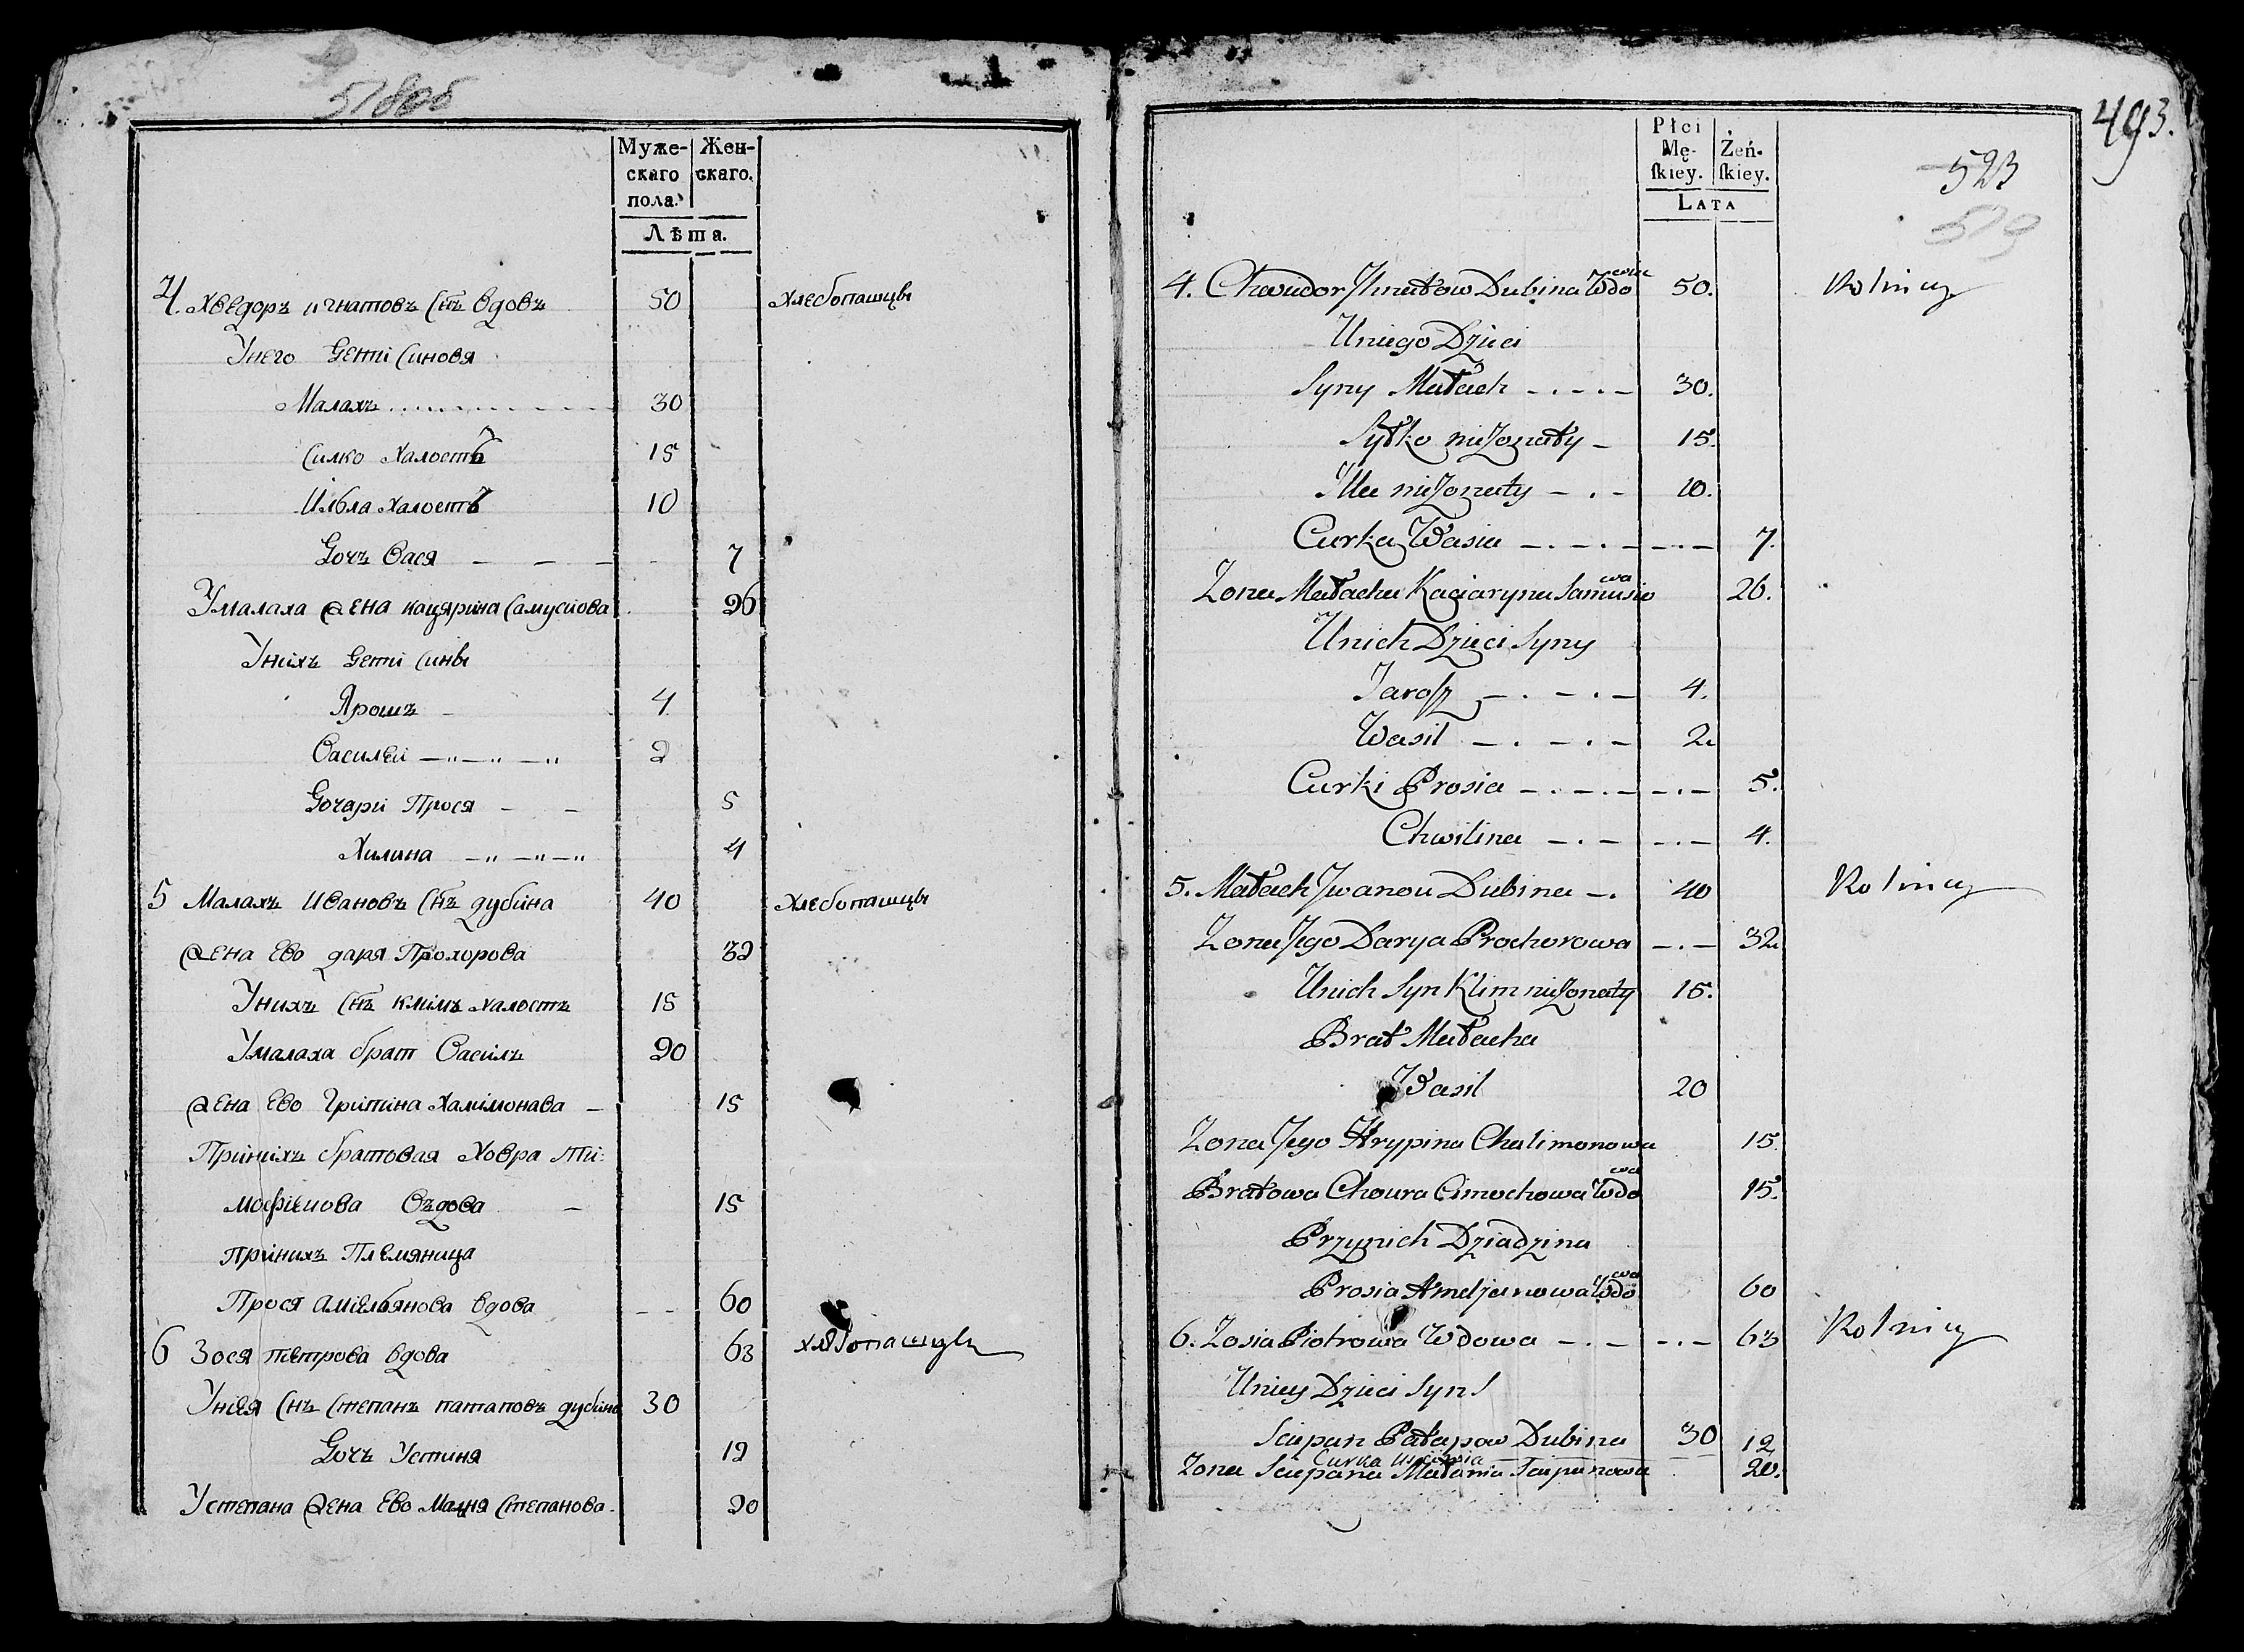 518об
Муже-
скаго
пола.
Жен-
скаго.
Лѣта.
4. Хведоръ игнатовъ Снъ вдовъ 50 Хлебопашцы
Унего дети Синовя
Малахъ 30
Силко Халостъ 15
Илля Халостъ 10
Дочъ Вася 7
Умалаха жена кацярина Самусиова 26
Унихъ дети Сины
Ярошъ 4
Василеи 2
Дочари Прося 5
Хилина 4
5 Малахъ Ивановъ Снъ дубина 40 Хлебопашцы
жена Ево даря Прохорова 32
Унихъ Снъ климъ халостъ 15
Умалаха брат Василъ 20
жена Ево Грипина Халимонава 15
Принихъ братовая Ховра Ти:
мофиеиова Въдова 15
принихъ Племяница
Прося амельянова вдова 60
6 Зося петрова вдова 63 хлебопашцы
Унея Снъ Степанъ патаповъ дубина 30
Дочъ Устиня 12
Устепана жена Ево Малня Степанова 20
493.
523
519
Płci
Mę-
ſkiey.
Żeń-
ſkiey.
LATA
4. Chwiedor Ihnatow Dubina Wdowiec 50. Rolnicy
Uniego Dzieci
Syny Małach 30.
Syłko nieżonaty 15.
Illa nieżonaty 10.
Curka Wasia 7.
Zona Małacha Kaciaryna Samusiowa 26.
Unich Dzieci Syny
Jarosz 4.
Wasil 2.
Curki Prosia 5.
Chwilina 4.
5. Małach Jwanou Dubina 40 Rolnicy
Zona Jego Darya Prochorowa 32
Unich Syn Klim nieżonaty 15.
Brat Małacha
Wasil 20
Zona Jego Hrypina Chalimonowa 15.
Bratowa Choura Cimochowa Wdowa 15.
Przynich Dziadzina
Prosia Ameljanowa Wdowa 60
6. Zosia Piotrowa Wdowa 63 Rolnicy
Uniey Dzieci Syn
Sciepan Patapow Dubina 30
Curka 12
Zona Sciepana Małania Sciepanowa 20.